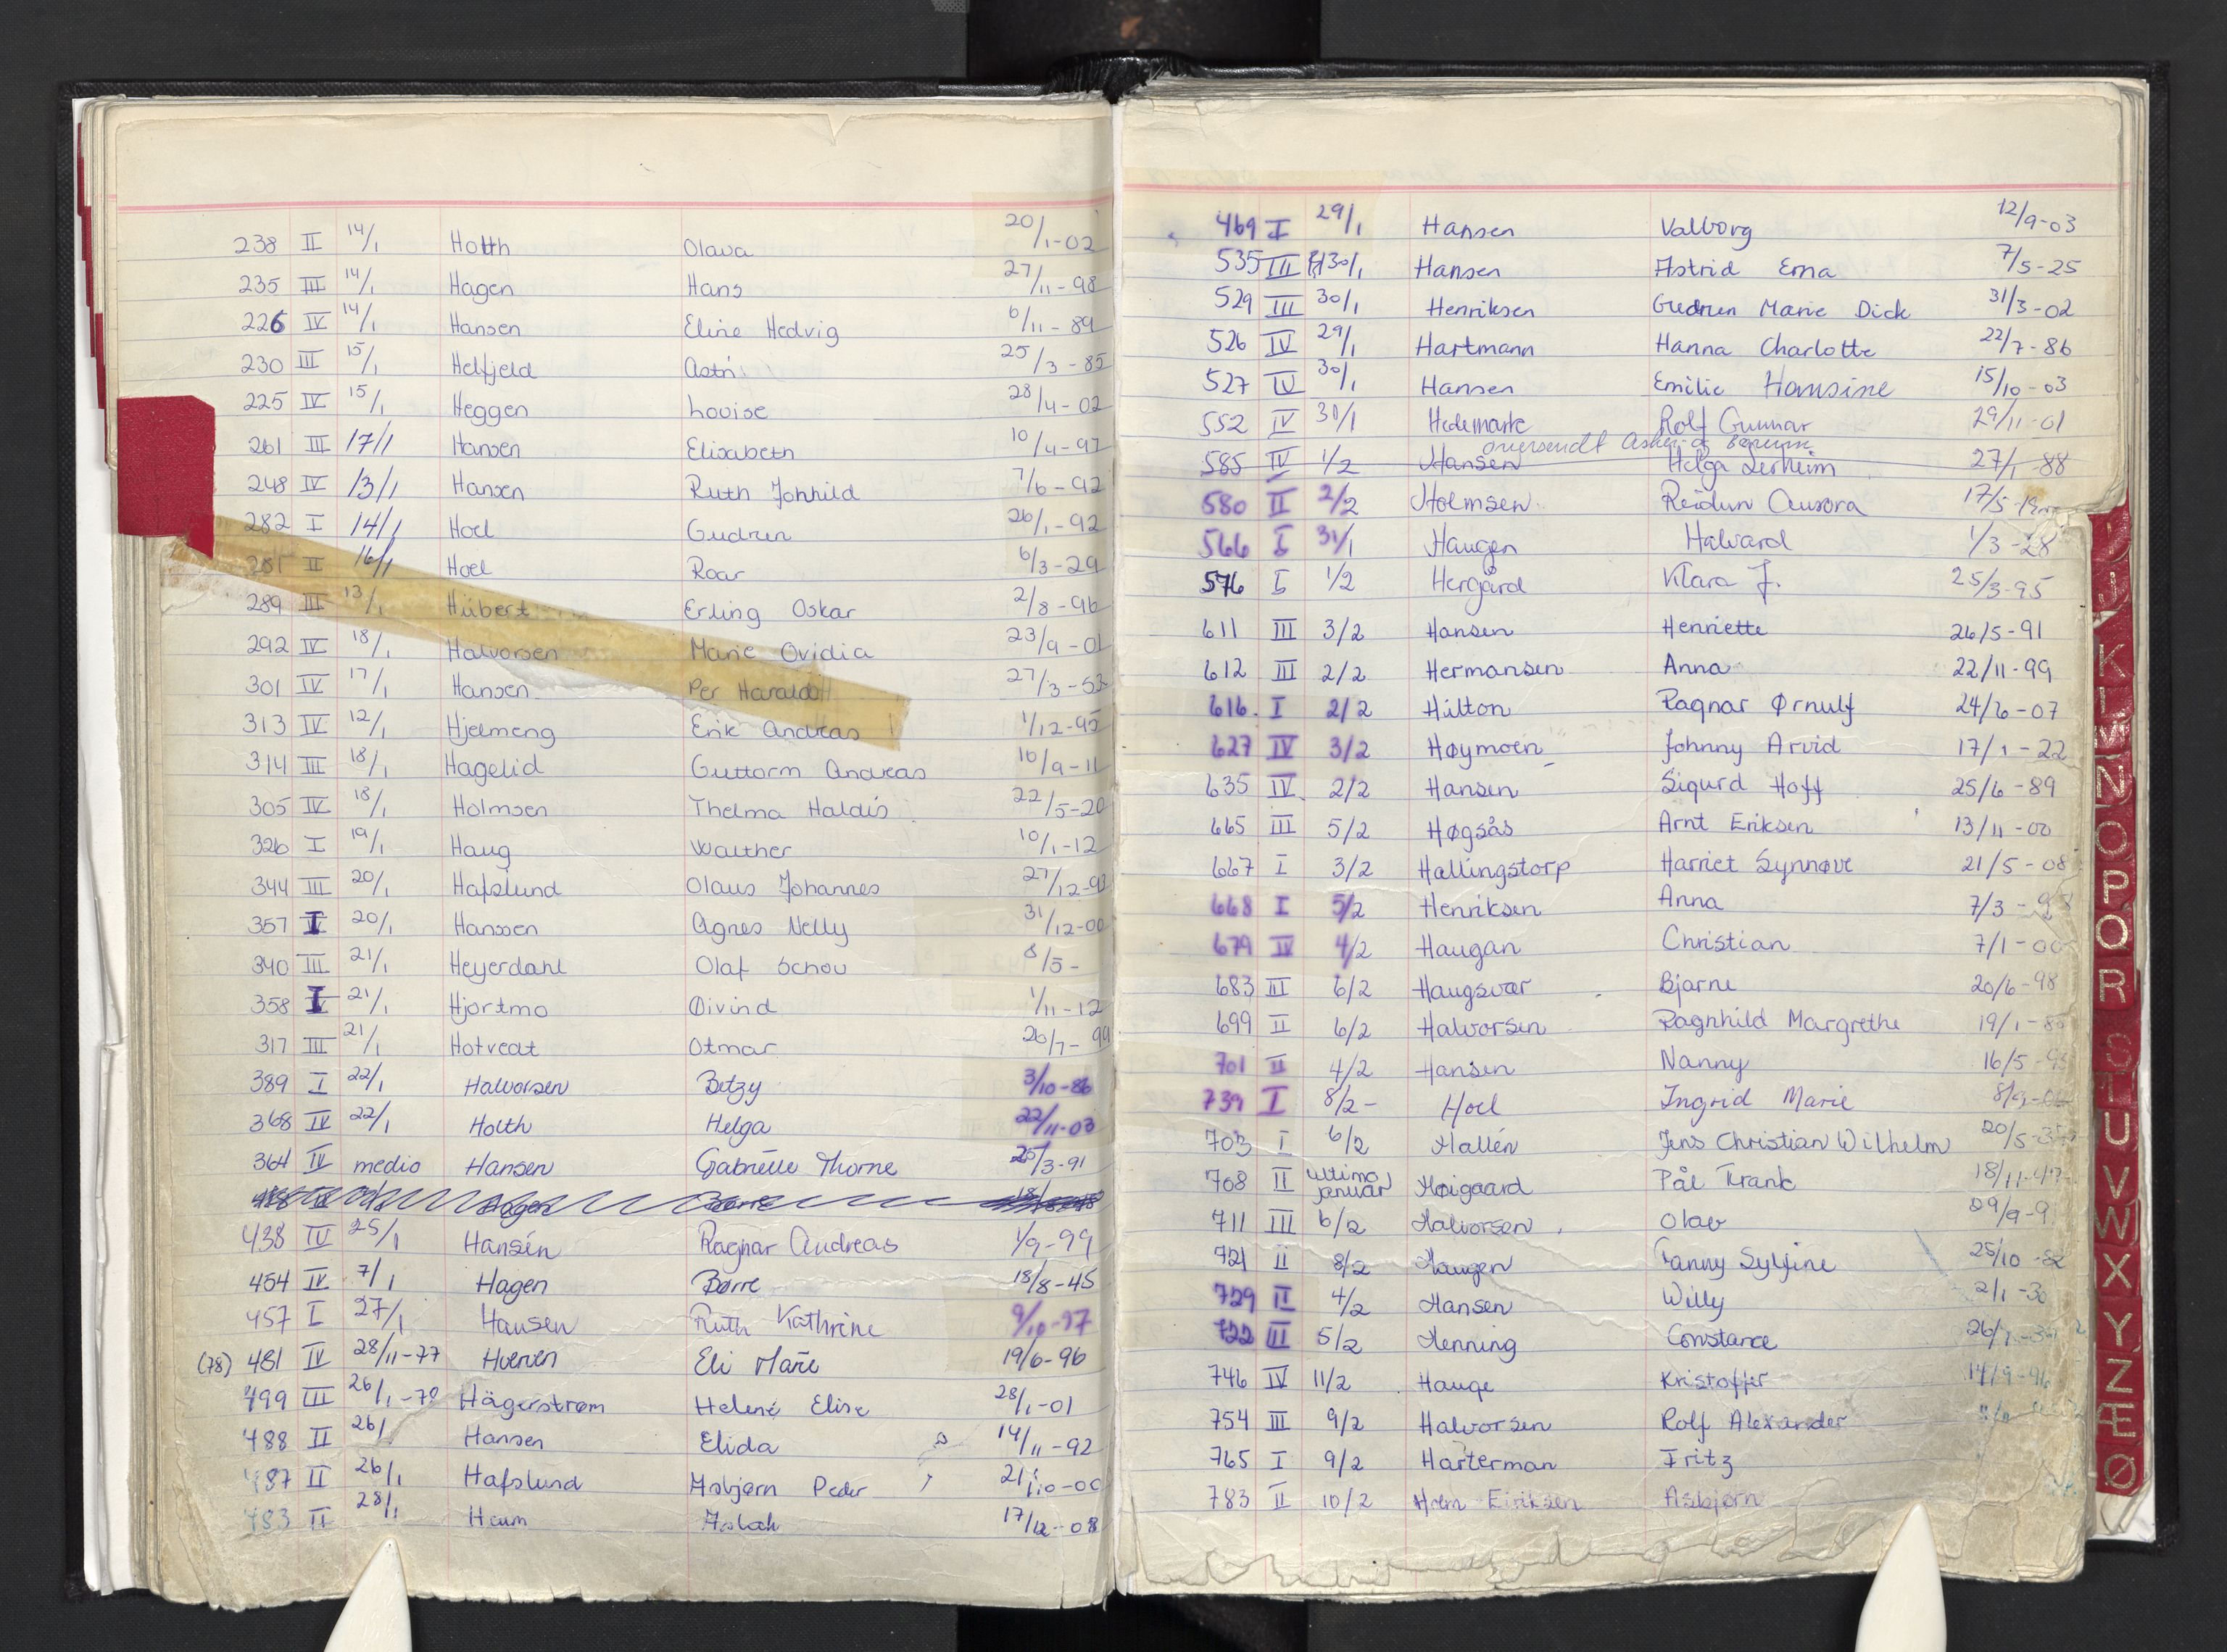 238 II 14/1 Holth Olava 20/1-02
235 III 14/1 Hagen Hans 27/11-98
226 IV 14/1 Hansen Eline Hedvig 6/11-89
230 III 15/1 Helfjeld Astri 25/3-85
225 IV 15/1 Heggen Lovise 28/4-02
261 III 17/1 Hansen Elisabeth 10/4-97
248 IV 13/1 Hansen Ruth Johhild 7/6-92
282 I 14/1 Hoel Gudrun 26/1-92
281 II 16/1 Hoel Roar 6/3-29
289 III 13/1 Hübert Erling Oskar 2/8-96
292 IV 18/1 Halvorsen Marie Ovidia 23/9-01
301 IV 17/1 Hansen Per Harald 27/3-53
313 IV 12/1 Hjelmeng Erik Andreas 1/12-95
314 III 18/1 Hagelid Guttorm Andreas 10/9-11
305 IV 18/1 Holmsen Thelma Haldis 22/5-20
326 I 19/1 Haug Walther 10/1-12
344 III 20/1 Hafslund Olaus Johannes 27/12-93
357 I 20/1 Hanssen Agnes Nelly 31/12-00
340 III 21/1 Heyerdahl Olaf Schou 8/5-
358 I 21/1 Hjortmo Øivind 1/11-12
317 III 21/1 Hotvedt Otmar 26/7-99
389 I 22/1 Halvorsen Betzy 3/10-86
368 IV 22/1 Holth Helga 22/11-03
364 IV medio Hansen Gabrielle Thorne 25/3-91
Hagen Børre
438 IV 25/1 Hansen Ragnar Andreas 1/9-99
454 IV 7/1 Hagen Børre 18/8-45
457 I 27/1 Hansen Ruth Kathrine 9/10-97
(78) 481 IV 28/11-77 Hverven Eli Marie 19/6-96
499 III 26/1-78 Hägerstrøm Helene Elise 28/1-01
488 II 26/ Hansen Elida 14/11-92
487 II 26/1 Hafslund Asbjørn Peder 21/10-00
483 II 28/1 Haum Aslak 17/12-08
469 I 29/1 Hansen Valborg 12/9-03
535 III 30/1 Hansen Astrid Erna 7/5-25
529 III 30/1 Henriksen Gudrun Marie Dick 31/3-02
526 IV 29/1 Hartmann Hanna Charlotte 22/7-86
527 IV 30/1 Hansen Emilie Hansine 15/10-03
552 IV 31/1 Hedemark Rolf Gunnar 29/11-01
oversendt Asker og Bærum
585 IV 1/2 Hansen Helga Lerheim 27/1-88
580 II 2/2 Holmsen Reidun Aurora 17/5-
566 I 31/1 Haugen Halvard 1/3-28
576 I 1/2 Hergård Klara J. 25/3-95
611 III 3/2 Hansen Henriette 26/5-91
612 III 2/2 Hermansen Anna 22/11-99
616 I 2/2 Hilton Ragnar Ørnulf 24/6-07
627 IV 3/2 Høymoen Johnny Arvid 17/1-22
635 IV 2/2 Hansen Sigurd Hoff 25/6-89
665 III 5/2 Høgsås Arnt Eriksen 13/11-00
667 I 3/2 Hallingstorp Harriet Synnøve 21/5-08
668 I 5/2 Henriksen Anna 7/3-98
679 IV 4/2 Haugan Christian 7/1-00
683 III 6/2 Haugsvær Bjarne 20/6-98
699 II 6/2 Halvorsen Ragnhild Margrethe 19/1-85
701 II 4/2 Hansen Nanny 16/5-
739 I 8/2- Hoel Ingrid Marie 8/9-
703 I 6/2 Hallén Jens Christian Wilhelm 20/5-
708 II ultimo januar Høigaard Pål Frank 18/11-47
711 III 6/2 Halvorsen Olav 29/9-9
721 II 8/2 Haugen Fanny Sylfine 25/10-82
729 II 4/2 Hansen Willy 2/1-30
722 III 5/2 Henning Constance 26/1-
746 IV 11/2 Hauge Kristoffer 14/9-
754 III 9/2 Halvorsen Rolf Alexander
765 I 9/2 Harterman Fritz
783 II 10/2 Holm Eiriksen Asbjørn
J
K
L
M
N
O
P
Q
R
S
T
U
V
W
X
Y
Z
Æ
Ø